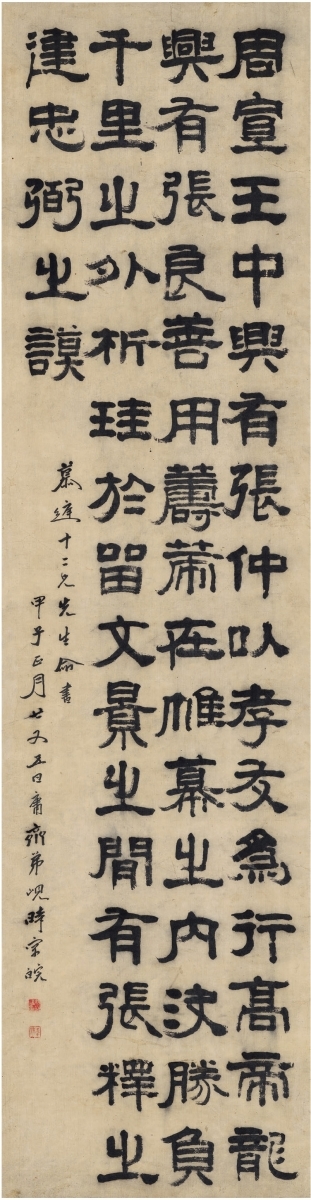 周宣王中興有張仲以孝友爲行高帝龍
興有張良善用籌策在帷幕之內決勝負
千里之外析珪於留文景之間有張釋之
建忠弼之謨
慕十二兄先生命書
甲子正月七又五日庸齋弟峴時客皖